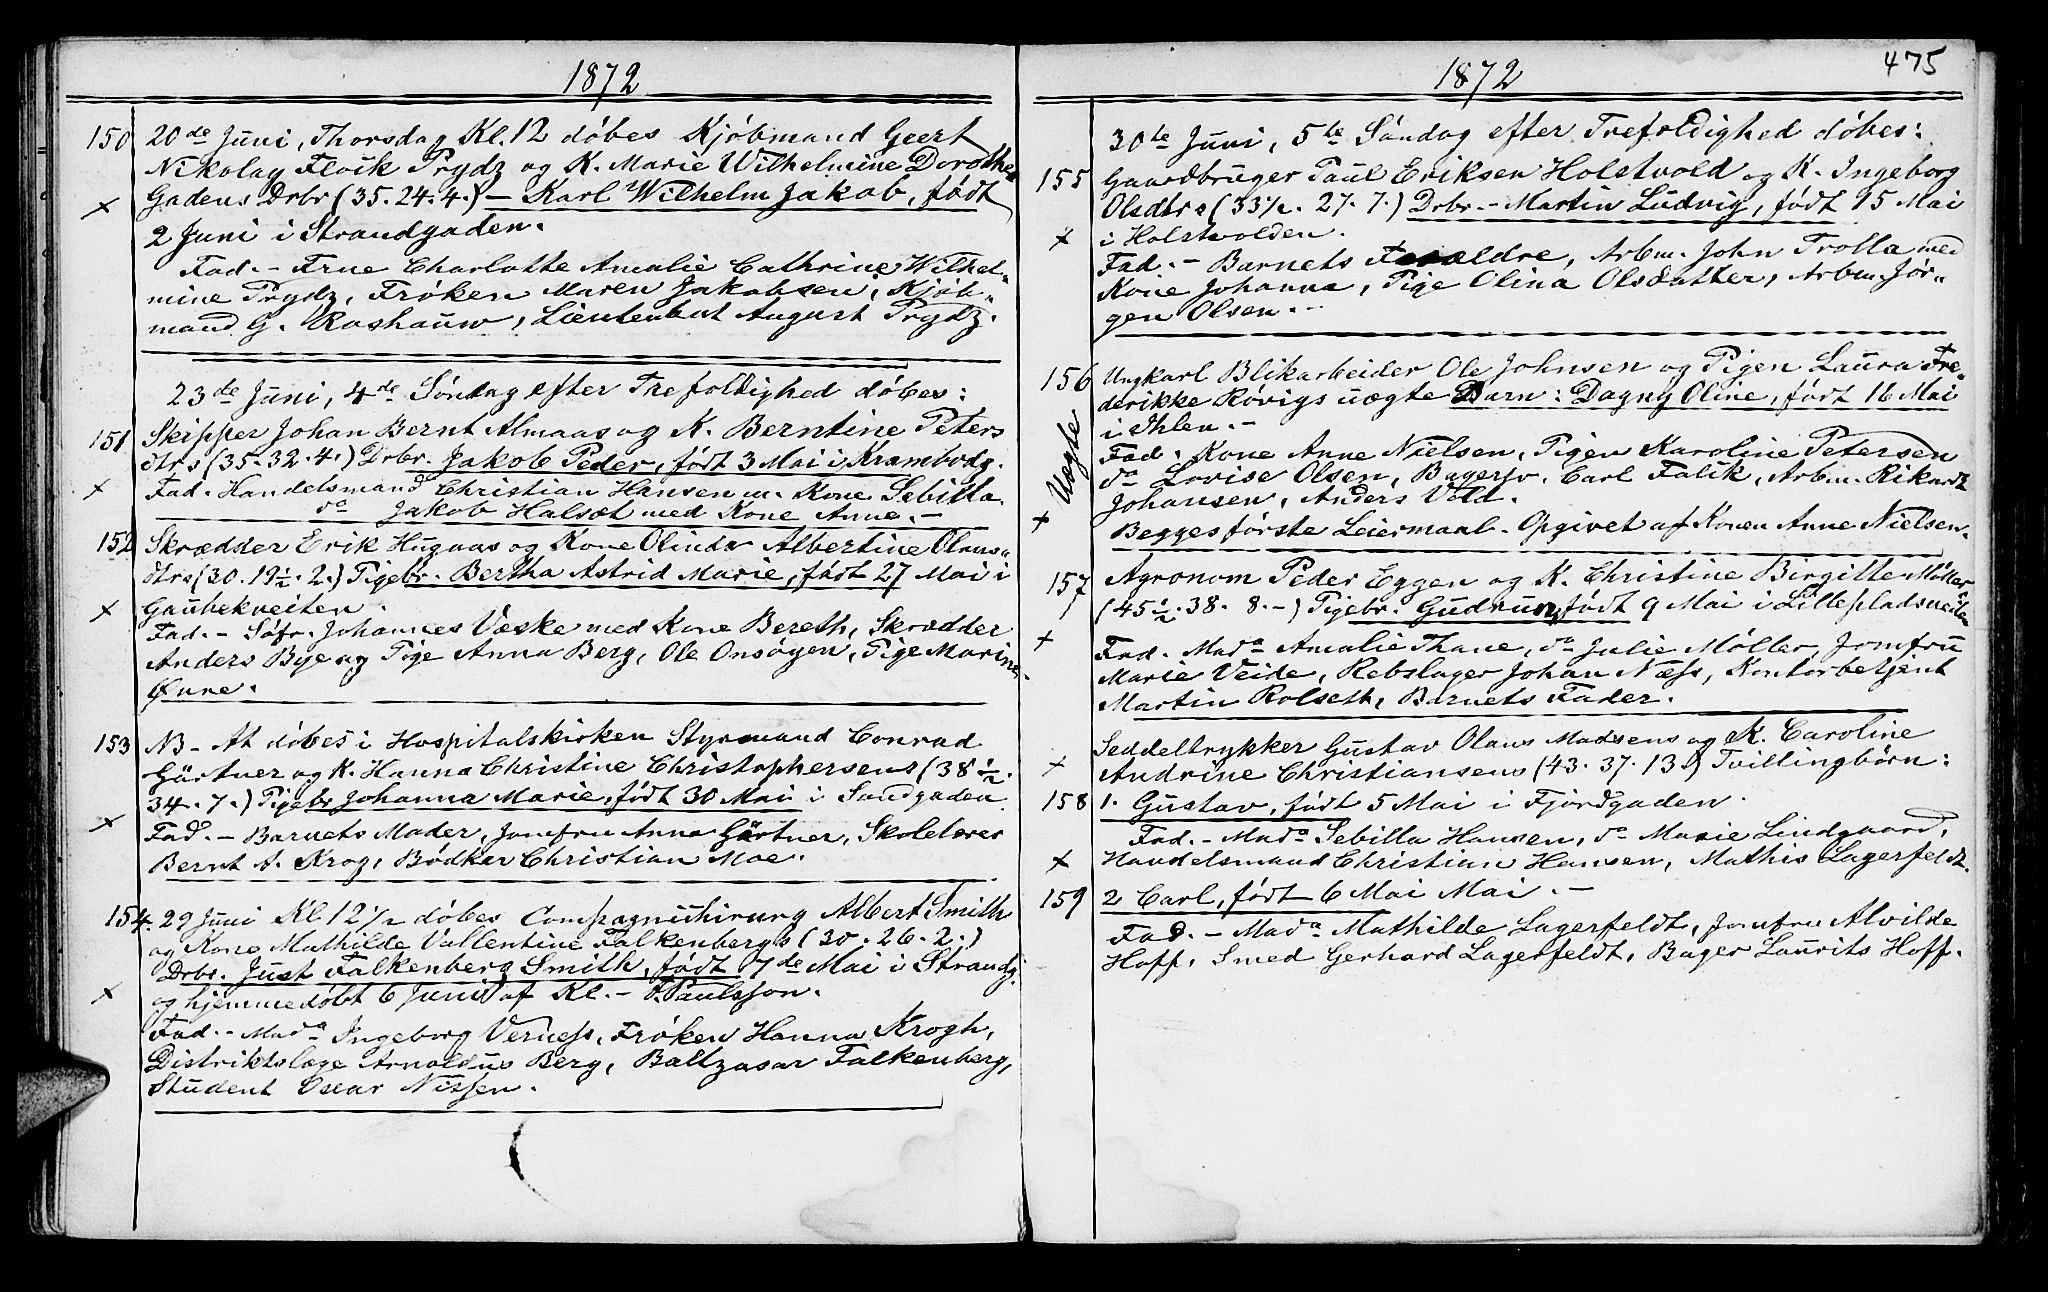 1872
150 20de Juni, Thorsdag Kl. 12 döbes Kjöbmand Geert
Nikolay Flvik Prydz og K. Marie Wilhelmine Dorothea
Gadens Drbr (35. 24. 4.) – Karl Wilhelm Jakob, födt
2 Juni i Strandgaden.
Fad. – Frue Charlotte Amalie Cathrine Wilhel-
mine Prydz, Fröken Maren Jakobsen, Kjöb-
mand G. Roshauw, Lieutenant August Prydz.
23de Juni, 4de Söndag efter Trefoldighed döbes:
151 Skipper Johan Bernt Almaas og K. Berntine Peters
dtrs (35. 32. 4.) Drbr. Jakob Peder, födt 3 Mai i Krambodg.
Fad. Handelsmand Christian Hansen m. Kone Sebilla
do Jakob Halsæt med Kone Anne. –
152 Skrædder Erik Hugaas og Kone Olinda Albertine Olaus-
dtrs (30. 19½. 2.) Pigebr. Bertha Astrid Marie, födt 27 Mai i
Gaubekveiten.
Fad. – Söfr. Johannes Væske med Kone Bereth, Skrædder
Anders Bye og Pige Anna Berg, Ole Onsöyen, Pige Marine
Øune.
153 NB – At döbes i Hospitalskirken Styrmand Conrad
Gärtner og K. Hanna Christine Christophersens (38½.
34. 7.) Pigebr Johanna Marie, födt 30 Mai i Sandgaden.
Fad. – Barnets Moder, Jomfru Anna Gärtner, Skolelærer
Bernt A. Krog, Bödker Christian Moe.
154. 29 Juni Kl. 12½ döbes Compagnichirurg Albert Smith
og Kone Mathilde Vallentine Falkenbergs (30. 26. 2.)
Drbr. Just Falkenberg Smith, födt 7de Mai i Strandg.
og hjemmedöbt 6 Juni af Kl. – F. Paulsson.
Fad. – Mada Ingeborg Verness, Fröken Hanna Krogh,
Distriktslæge Arnoldus Berg, Baltzasar Falkenberg,
Student Oscar Nissen.
1872 475
30te Juni, 5te Söndag efter Trefoldighed döbes:
155 Gaardbruger Paul Eriksen Holstvold og K. Ingeborg
Olsdtrs (33½. 27. 7.) Drbr. – Martin Ludvig, födt 15 Mai
i Holstvolden.
Fad. – Barnets Forældre, Arbm. John Trolla med
Kone Johanna, Pige Olina Olsdatter, Arbm. Jör-
gen Olsen. –
156 Ungkarl Blikarbeider Ole Johnsen og Pigen Laura Fre-
derikke Rövigs uægte Barn: Dagny Oline, födt 16 Mai
i Ihlen. –
Uægte
Fad. Kone Anne Nielsen, Pigen Karoline Petersen
do Lovise Olsen, Bagersv. Carl Falik, Arbm. Rikard
Johansen, Anders Vold.
Begges förste Leiermaal. Opgivet af Konen Anne Nielsen.
157 Agronom Peder Eggen og K. Christine Birgitte Möllers
(45½. 38. 8. –) Pigebr. Gudrun, födt 9 Mai i Lillepladsveiten
Fad. Mada Amalie Thane, do Julie Möller, Jomfru
Marie Veide, Rebslager Johan Næss, Kontorbetjent
Martin Rolseth, Barnets Fader.
Seddeltrykker Gustav Olaus Madsens og K. Caroline
Andrine Christiansens (43. 37. 13.) Tvillingbörn:
158 1. Gustav, födt 5 Mai i Fjordgaden.
Fad. – Mada Sebilla Hansen, do Marie Lindgaard,
Handelsmand Christian Hansen, Mathis Lagerfeldt.
159 2 Carl, födt 6 Mai Mai. –
Fad. – Mada Mathilde Lagerfeldt, Jomfru Alvilde
Hoff, Smed Gerhard Lagerfeldt, Bager Laurits Hoff.